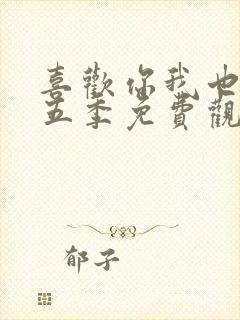 喜歡你我也
五季免費觀
郁子